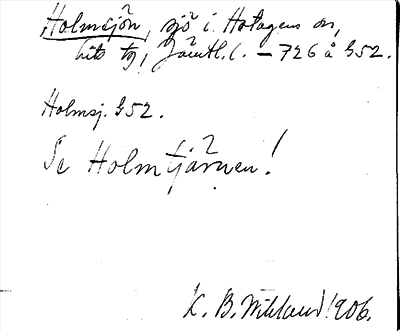 Holmsjön, sjö i Hotagens sn,
Lits tg, Jämtl. l. – 726 å G52.
Holmsj. G52.
Se Holmtjärnen!
K. B. Wiklund 1906.